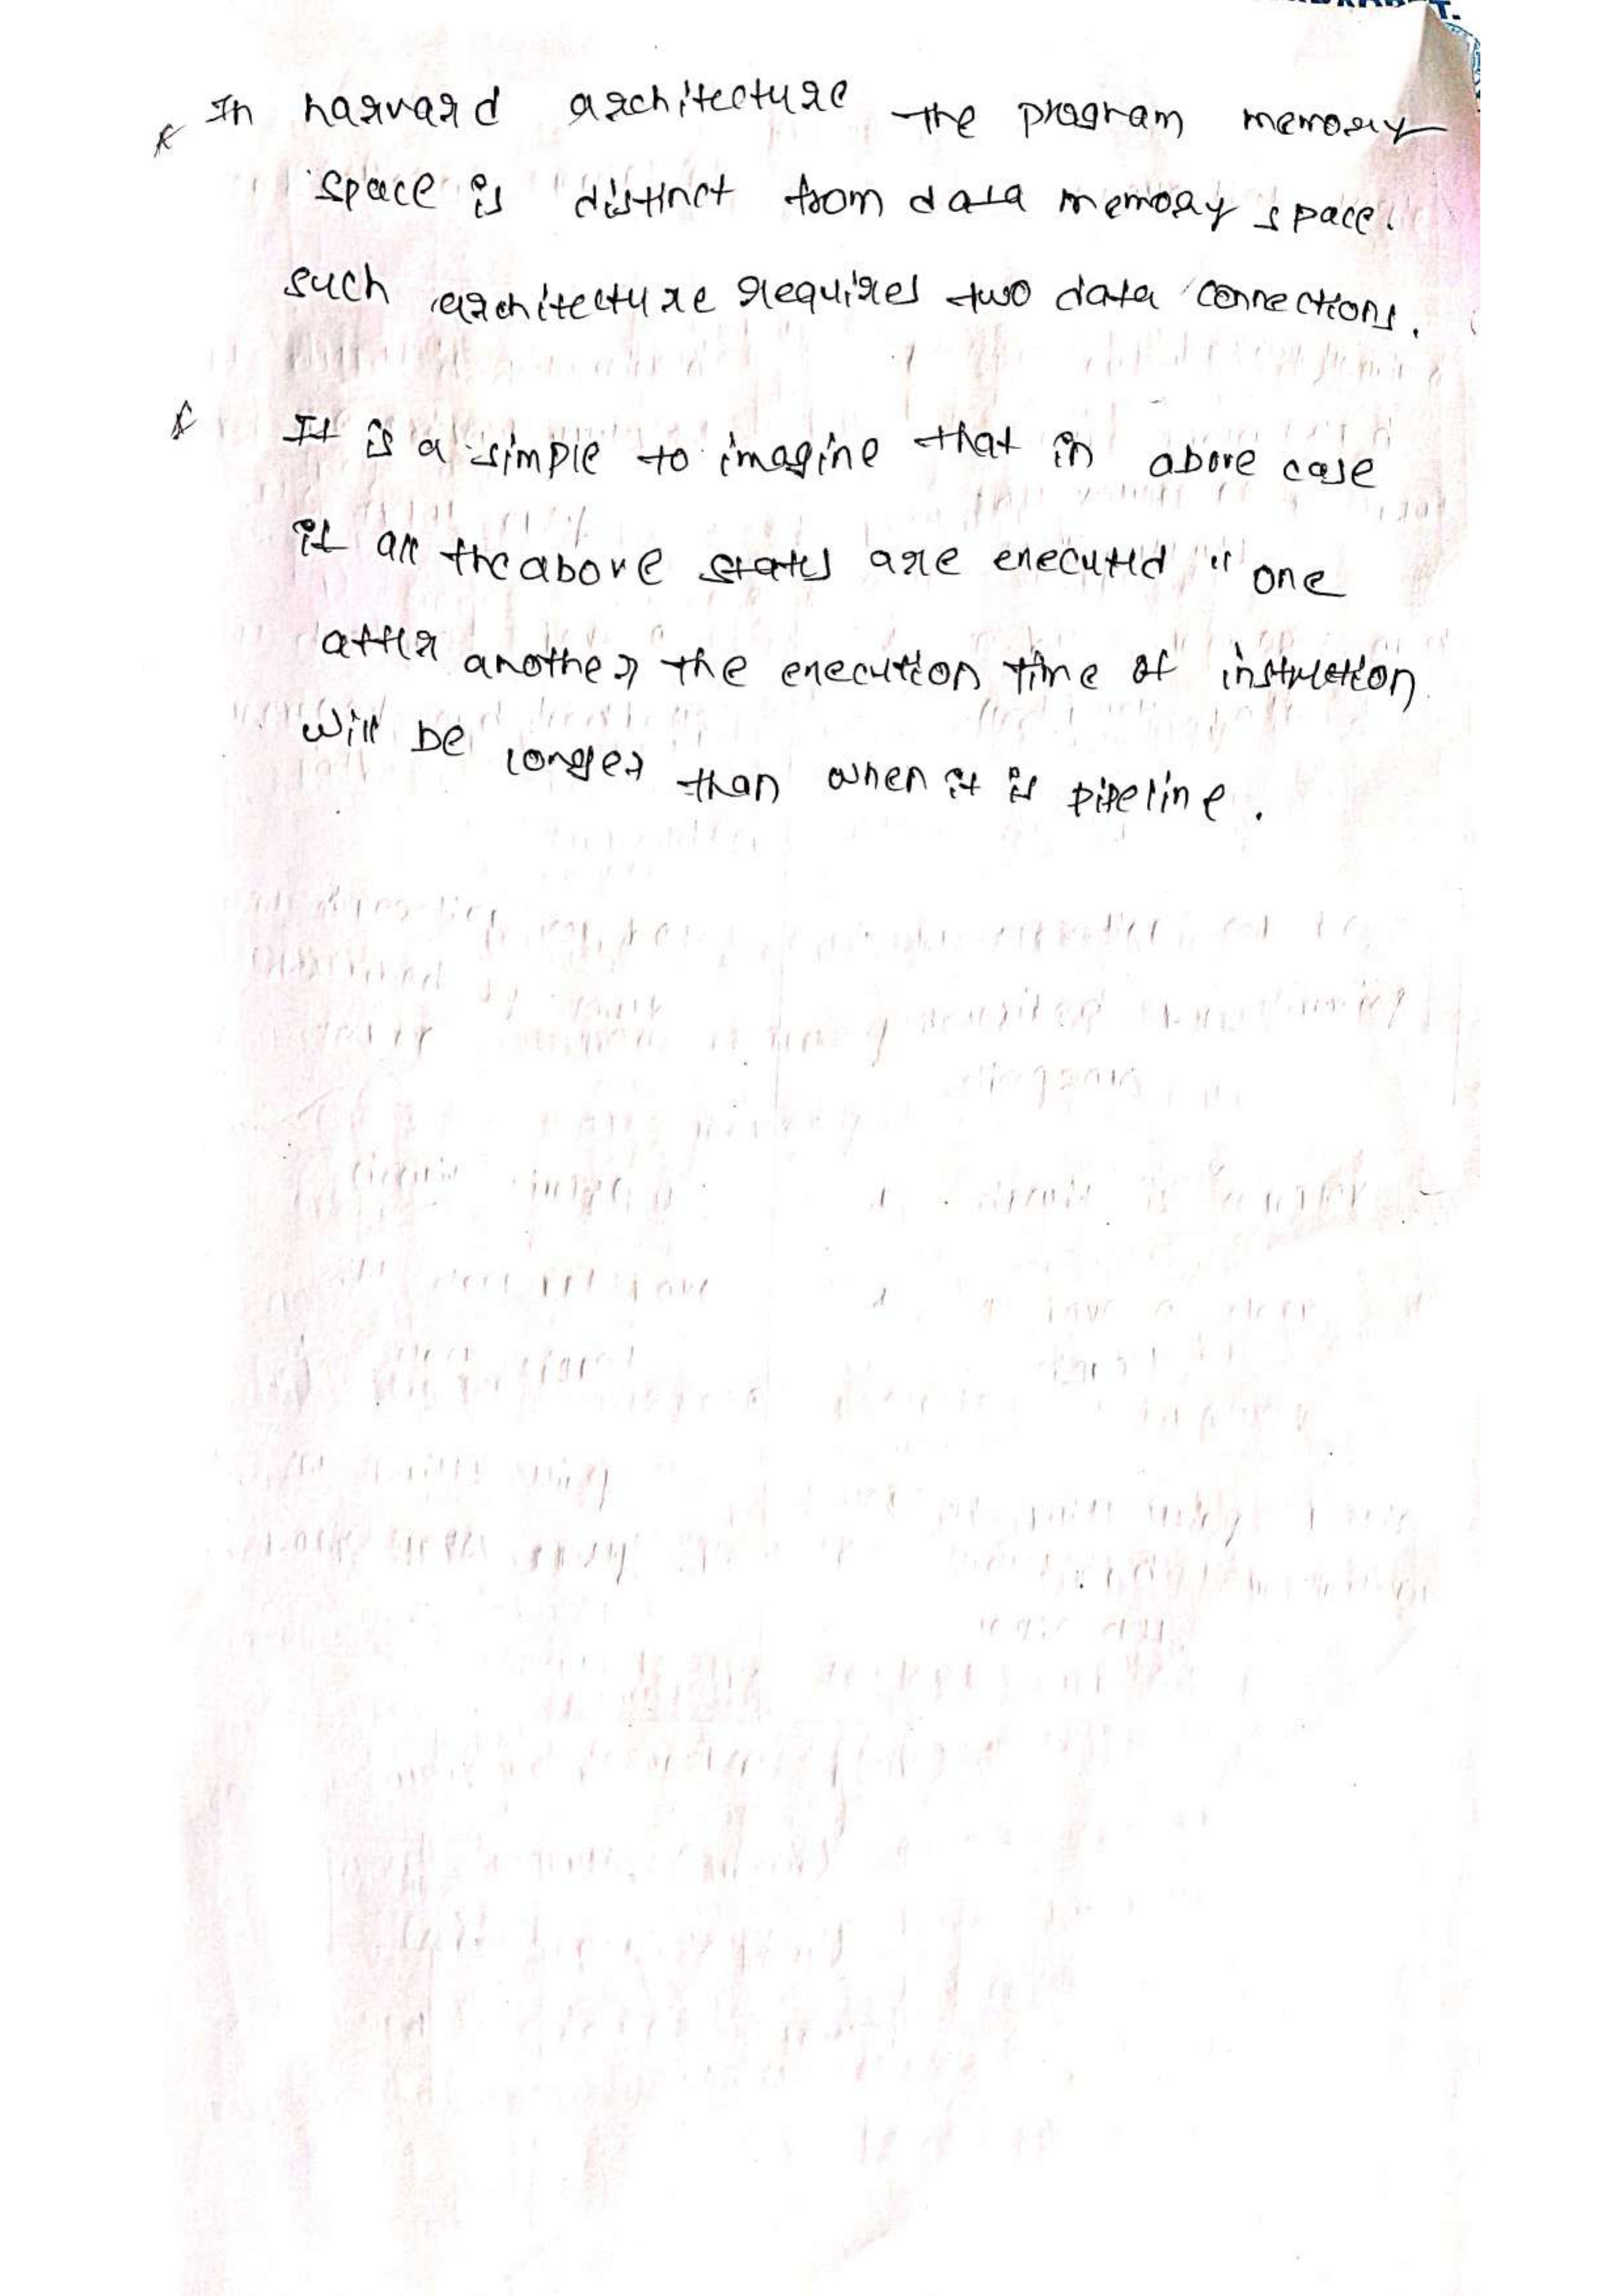 * In harvard architecture the program memory
space is distinct from data memory space.
such architecture requires two data connections.
* It is a simple to imagine that in above case
if all the above states are executed one
after another the execution time of instruction
will be longer than when it is pipeline.